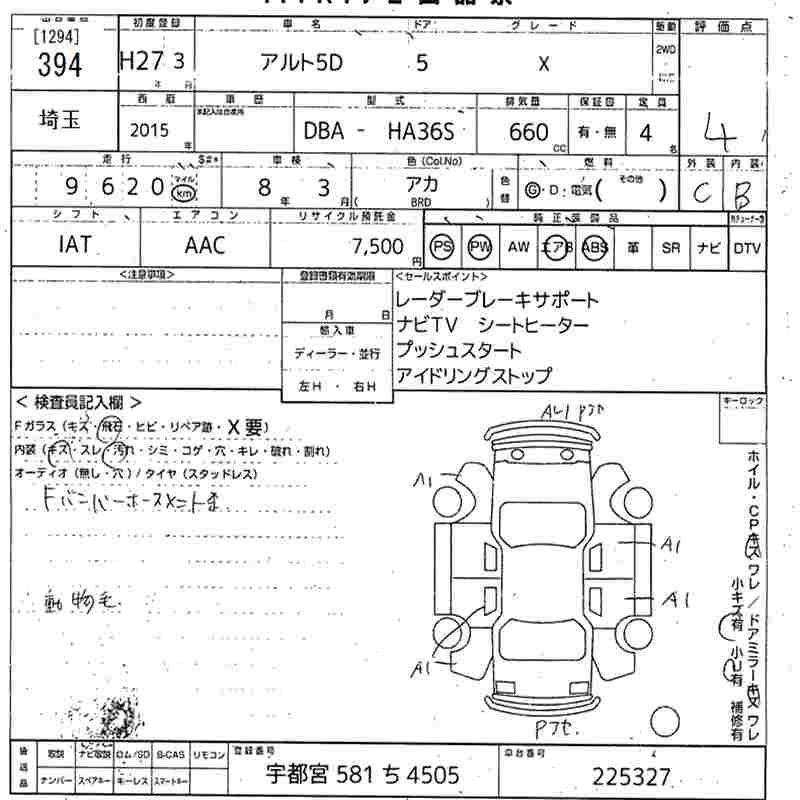 [1294]
394
初度登録
H27 3
年 月
車名
アルト5D
ドア
5
グレード
X
駆動
2WD
評価点
4
埼玉
西暦
2015
年
車歴
型式
DBA - HA36S
排気量
660
CC
保証書
有・無
定員
4
名
走行
9 6 2 0
マイル
km
車検
8 年 3 月
色(Col.No)
アカ
( BRD )
色替
燃料
G・D:電気( その他 )
外装
C
内装
B
シフト
IAT
エアコン
AAC
リサイクル預託金
7,500
円
純正装備品
PS PW AW エアB ABS 革 SR ナビ DTV
<注意事項>
登録書類有効期限
月 日
輸入車
ディーラー・並行
左H ・ 右H
<セールスポイント>
レーダーブレーキサポート
ナビTV シートヒーター
プッシュスタート
アイドリングストップ
< 検査員記入欄 >
Fガラス(キズ・飛石・ヒビ・リペア跡・X要)
内装(キズ・スレ・汚れ・シミ・コゲ・穴・キレ・破れ・割れ)
オーディオ(無し・穴)/タイヤ(スタッドレス)
動物毛
キーロック
A1
A1
A1
A1
ホイル・CPキズワレ/ドアミラーキズワレ
小キズ有 小U有 補修有
後送品
取説 ナビ取説 ロム/SD B-CAS リモコン
ナンバー スペアキー キーレス スマートキー
登録番号
宇都宮 581 ち 4505
車台番号
225327